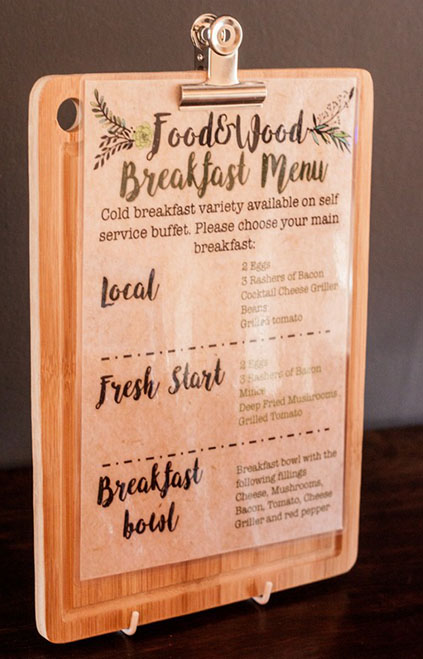 Food&Wood
Breakfast Menu
Cold breakfast variety available on self
service buffet. Please choose your main
breakfast:
Local
2 Eggs
3 Rashers of Bacon
Cocktail Cheese Griller
Beans
Grilled tomato
Fresh Start
2 Eggs
3 Rashers of Bacon
Mince
Deep Fried Mushrooms
Grilled Tomato
Breakfast
bowl
Breakfast bowl with the
following fillings
Cheese, Mushrooms,
Bacon, Tomato, Cheese
Griller and red pepper